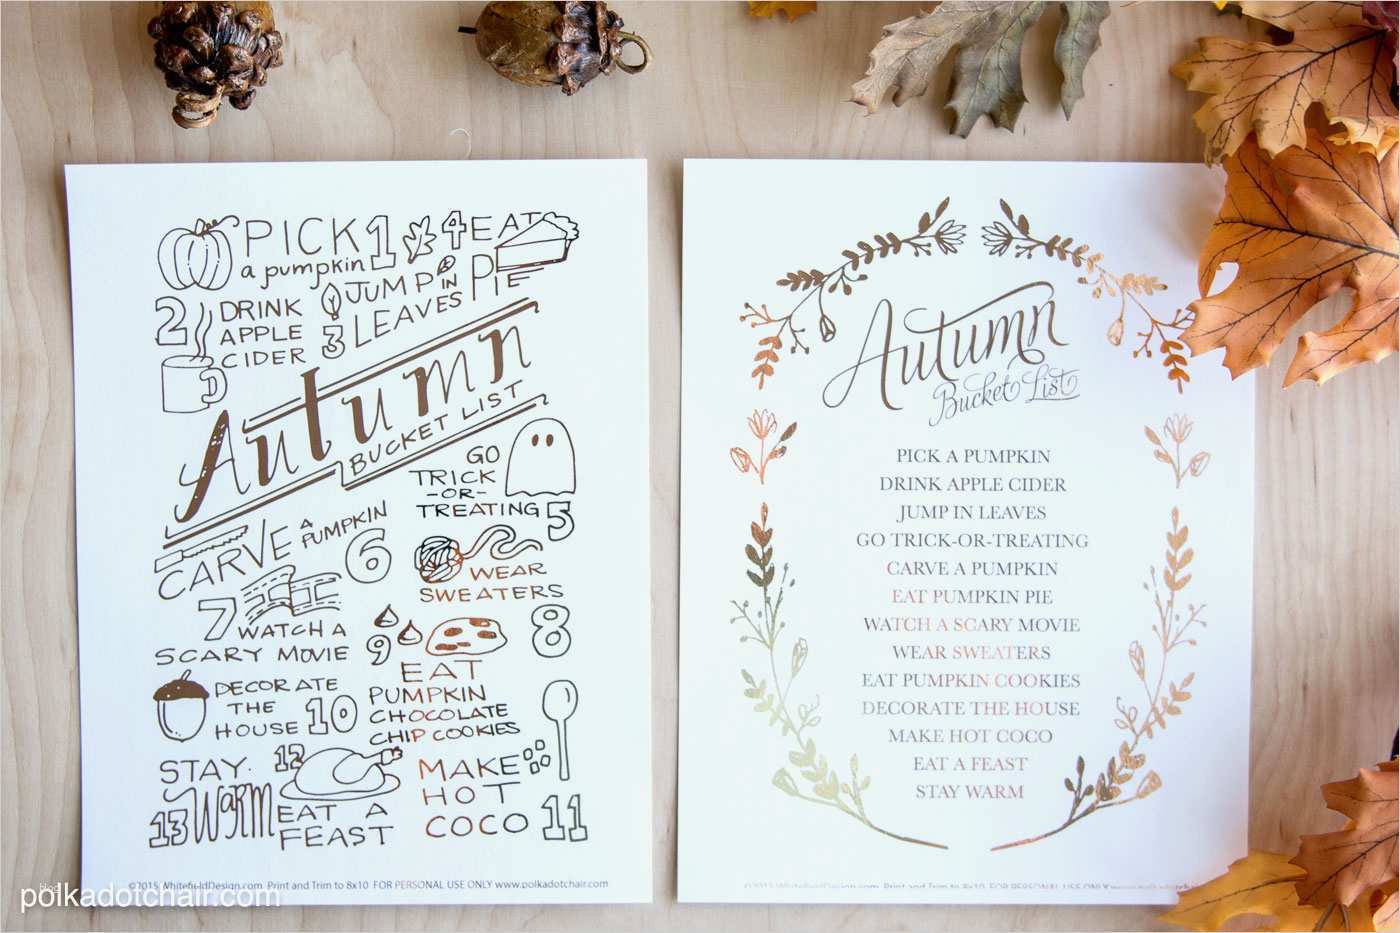 PICK 1
a pumpkin
4 EAT
PIE
2 DRINK
APPLE
CIDER
JUMP IN
3 LEAVES
Autumn
BUCKET LIST
GO
TRICK
-OR-
TREATING 5
CARVE A PUMPKIN
6
WEAR
SWEATERS
8
7 WATCH A
SCARY MOVIE
9
EAT
PUMPKIN
CHOCOLATE
CHIP COOKIES
DECORATE
THE
HOUSE 10
STAY
13 WARM
12
EAT A
FEAST
MAKE
HOT
COCO 11
©2015 WhitefieldDesign.com Print and Trim to 8x10 FOR PERSONAL USE ONLY www.polkadotchair.com
Autumn
Bucket List
PICK A PUMPKIN
DRINK APPLE CIDER
JUMP IN LEAVES
GO TRICK-OR-TREATING
CARVE A PUMPKIN
EAT PUMPKIN PIE
WATCH A SCARY MOVIE
WEAR SWEATERS
EAT PUMPKIN COOKIES
DECORATE THE HOUSE
MAKE HOT COCO
EAT A FEAST
STAY WARM
©2015 WhitefieldDesign.com Print and Trim to 8x10 FOR PERSONAL USE ONLY
blog
polkadotchair.com